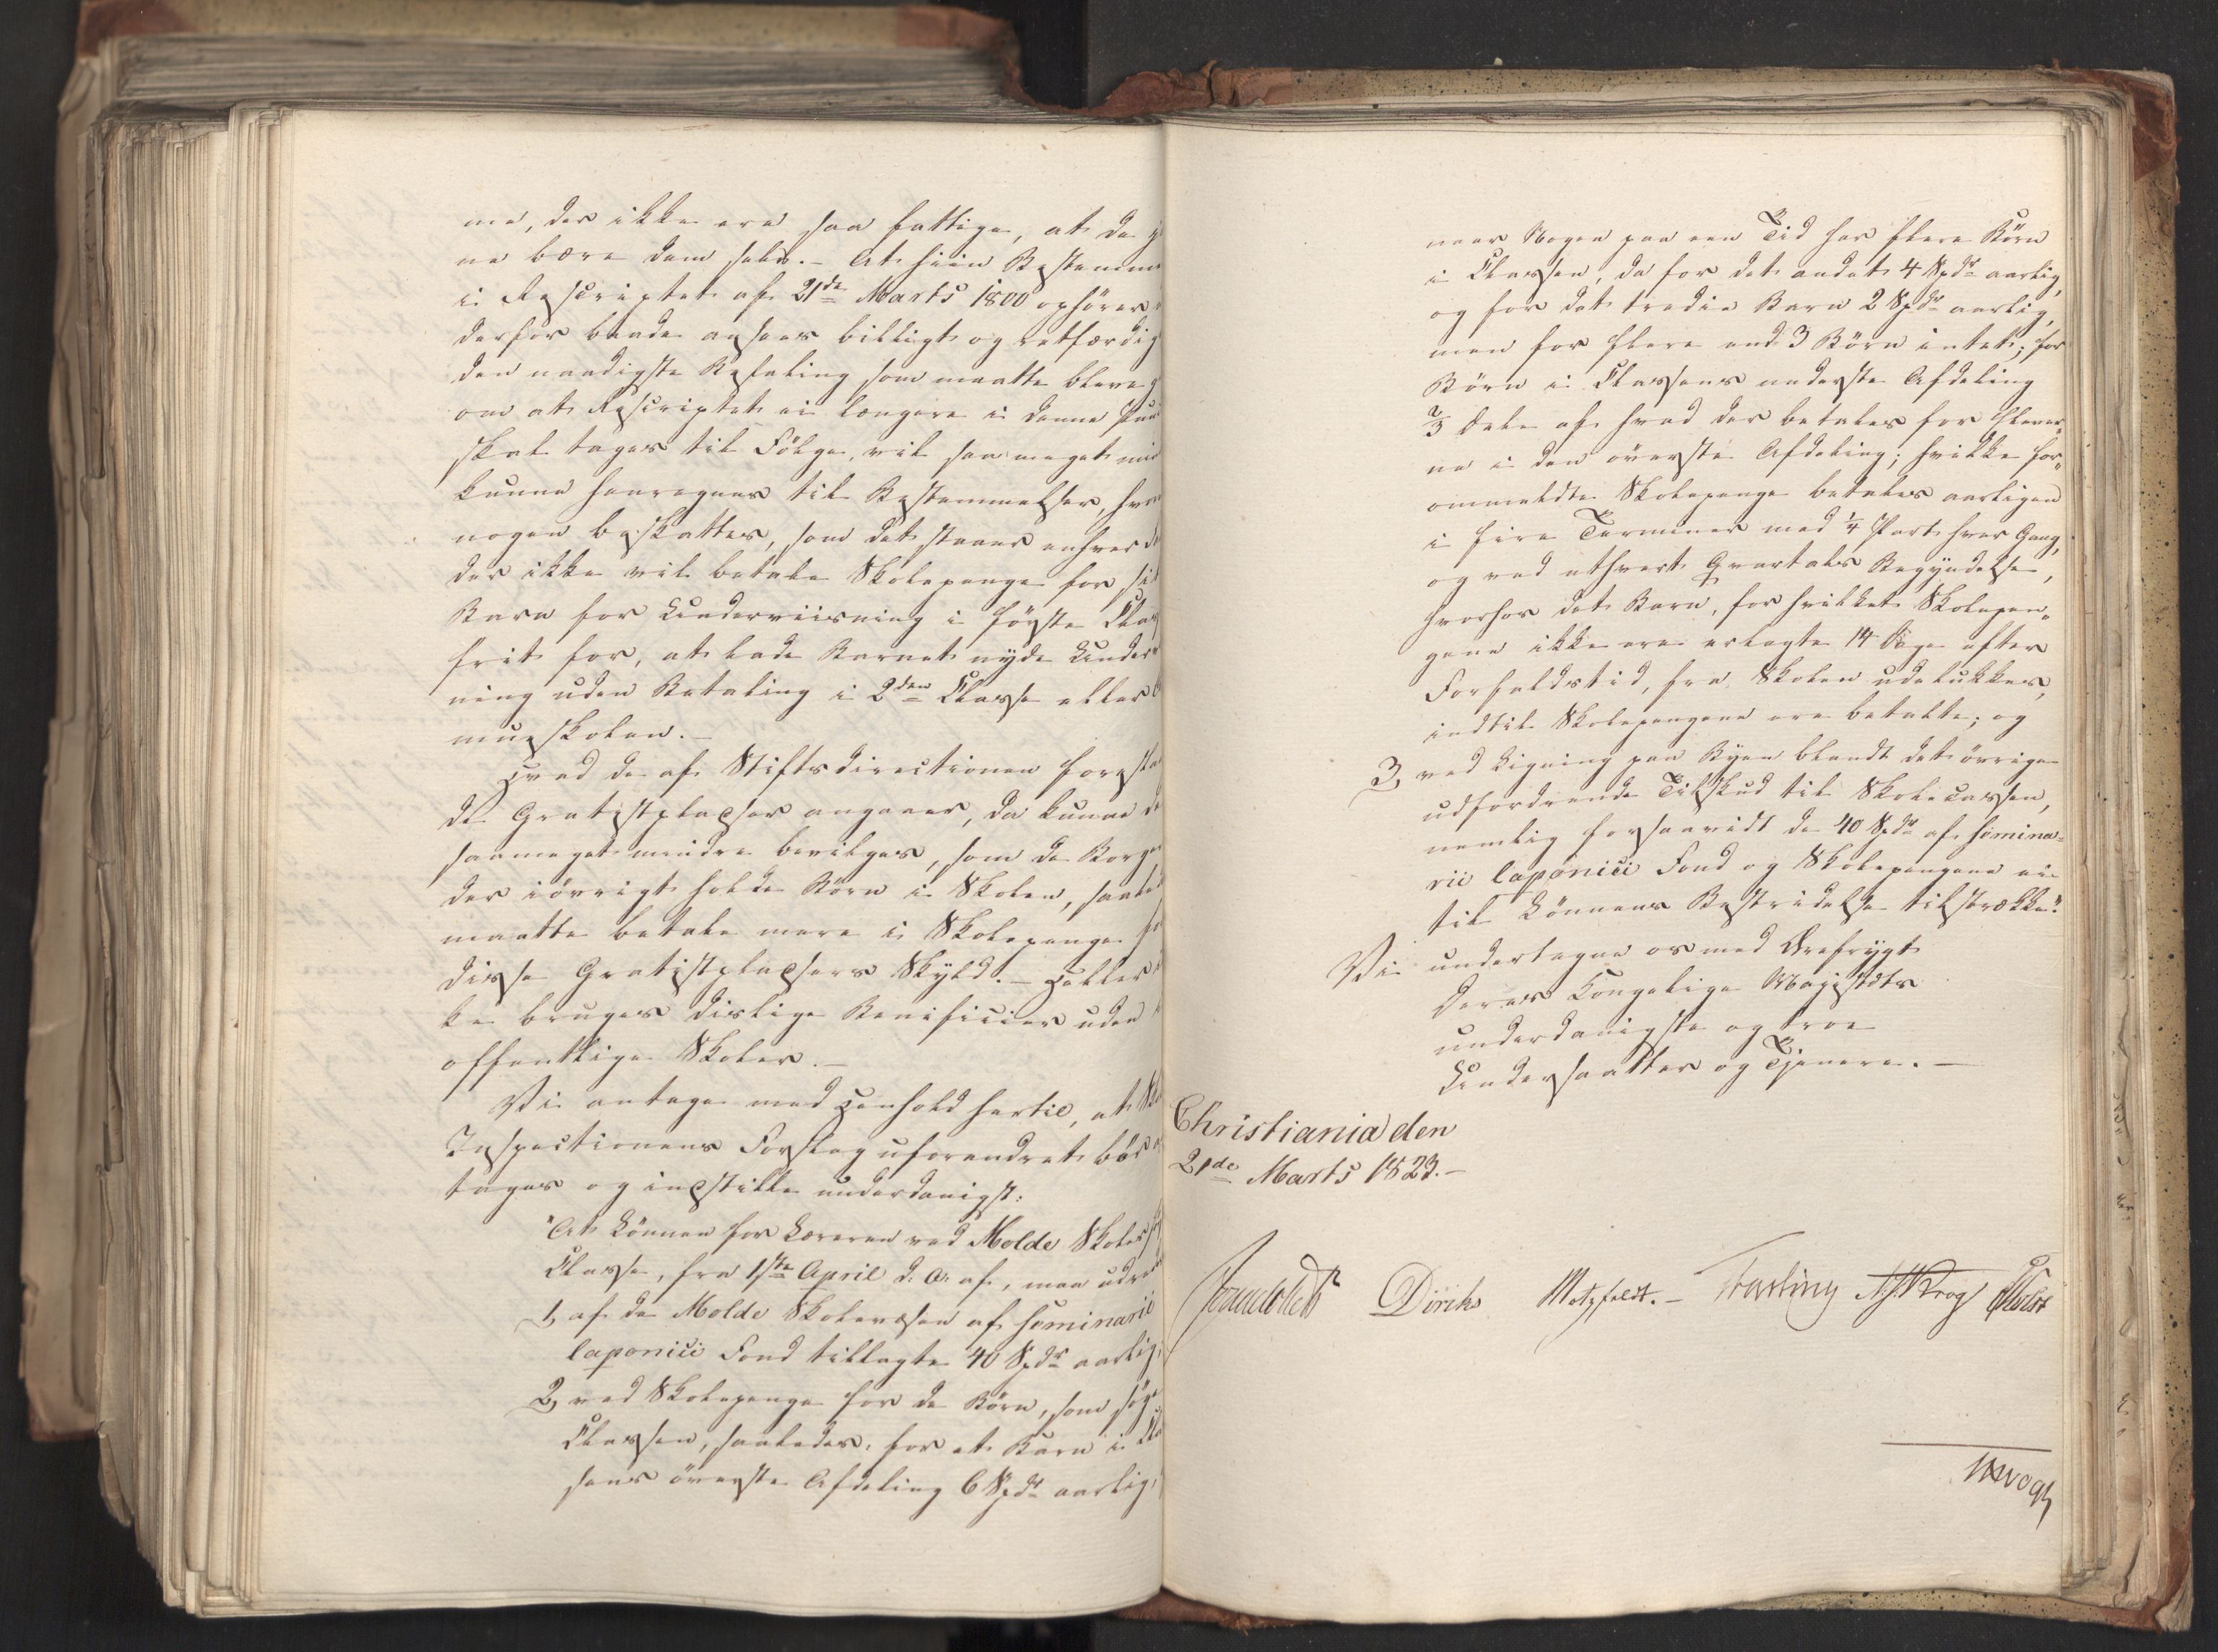 me, der ikke ere saa fattige, at de
ne bære dem selv. – At hiin Bestemm
i Rescriptet af 21de Marts 1800 ophører
derfor baade ansees billigt og retfærdig
den naadigste Befaling som maatte blive
om at Rescriptet ei længere i denne Pun
skal tages til Følge, vil saa meget min
kunne henregnes til Bestemmelser, hvor
nogen beskattes, som det staaer enhver
der ikke vil betale Skolepenge for sit
Barn for Underviisning i første Clas
frit for, at lade Barnet nyde Underv
ning uden Betaling i 2den Classe eller
mueskolen. –
Hvad de af Stiftsdirectionen foresla
de Gratistpladser angaaer, da kunne
saameget mindre bevilges, som de Borge
der iøvrigt holde Børn i Skolen, saaled
maatte betale mere i Skolepenge for
disse Gratistpladsers Skyld. – Heller
ke bruges deslige Beneficier uden
offentlige Skoler. –
Vi antage med Henhold hertil, at Sko
Inspectionens Forslag uforandret bør
tages og indstille underdanigst:
"At Lønnen for Læreren ved Molde Skoles
Classe, fra 1ste April d. A. af, maa udre
1, af de Molde Skolevæsen af Seminarii
laponici Fond tillagte 40 Spdr aarlig,
2, ved Skolepenge for de Børn, som søge
Classen, saaledes, for et Barn i Clas
sens øverste Afdeling 6 Spdr aarlig,
naar Nogen paa een Tid har flere Børn
i Classen, da for det andet 4 Spdr aarlig,
og for det tredie Barn 2 Spdr aarlig,
men for flere end 3 Børn intet; for
Børn i Classens nederste Afdeling
2/3 Dele af hvad der betales for Elever„
ne i den øverste Afdeling; hvilke for„
ommeldte Skolepenge betales aarligen
i fire Terminer med 1/4 Part hver Gang,
og ved ethvert Qvartals Begyndelse,
hvorhos det Barn, for hvilket Skolepen„
gene ikke ere erlagte 14 Dage efter
Forfaldstid, fra Skolen udelukkes,
indtil Skolepengene ere betalte; og
3, ved Ligning paa Byen blandt det øvrige
udfordrende Tilskud til Skolecassen,
nemlig forsaavidt de 40 Spdr af Semina-
rii laponici Fond og Skolepengene ei
til Lønnens Bestridelse tilstrække."
Vi undertegne os med Ærefrygt
Deres Kongelige Majestæts
underdanigste og troe
Undersaatter og Tjenere. –
Christiania den
21de Marts 1823. –
Diriks Motzfeldt. – Fasting Krog Holst
Vogt